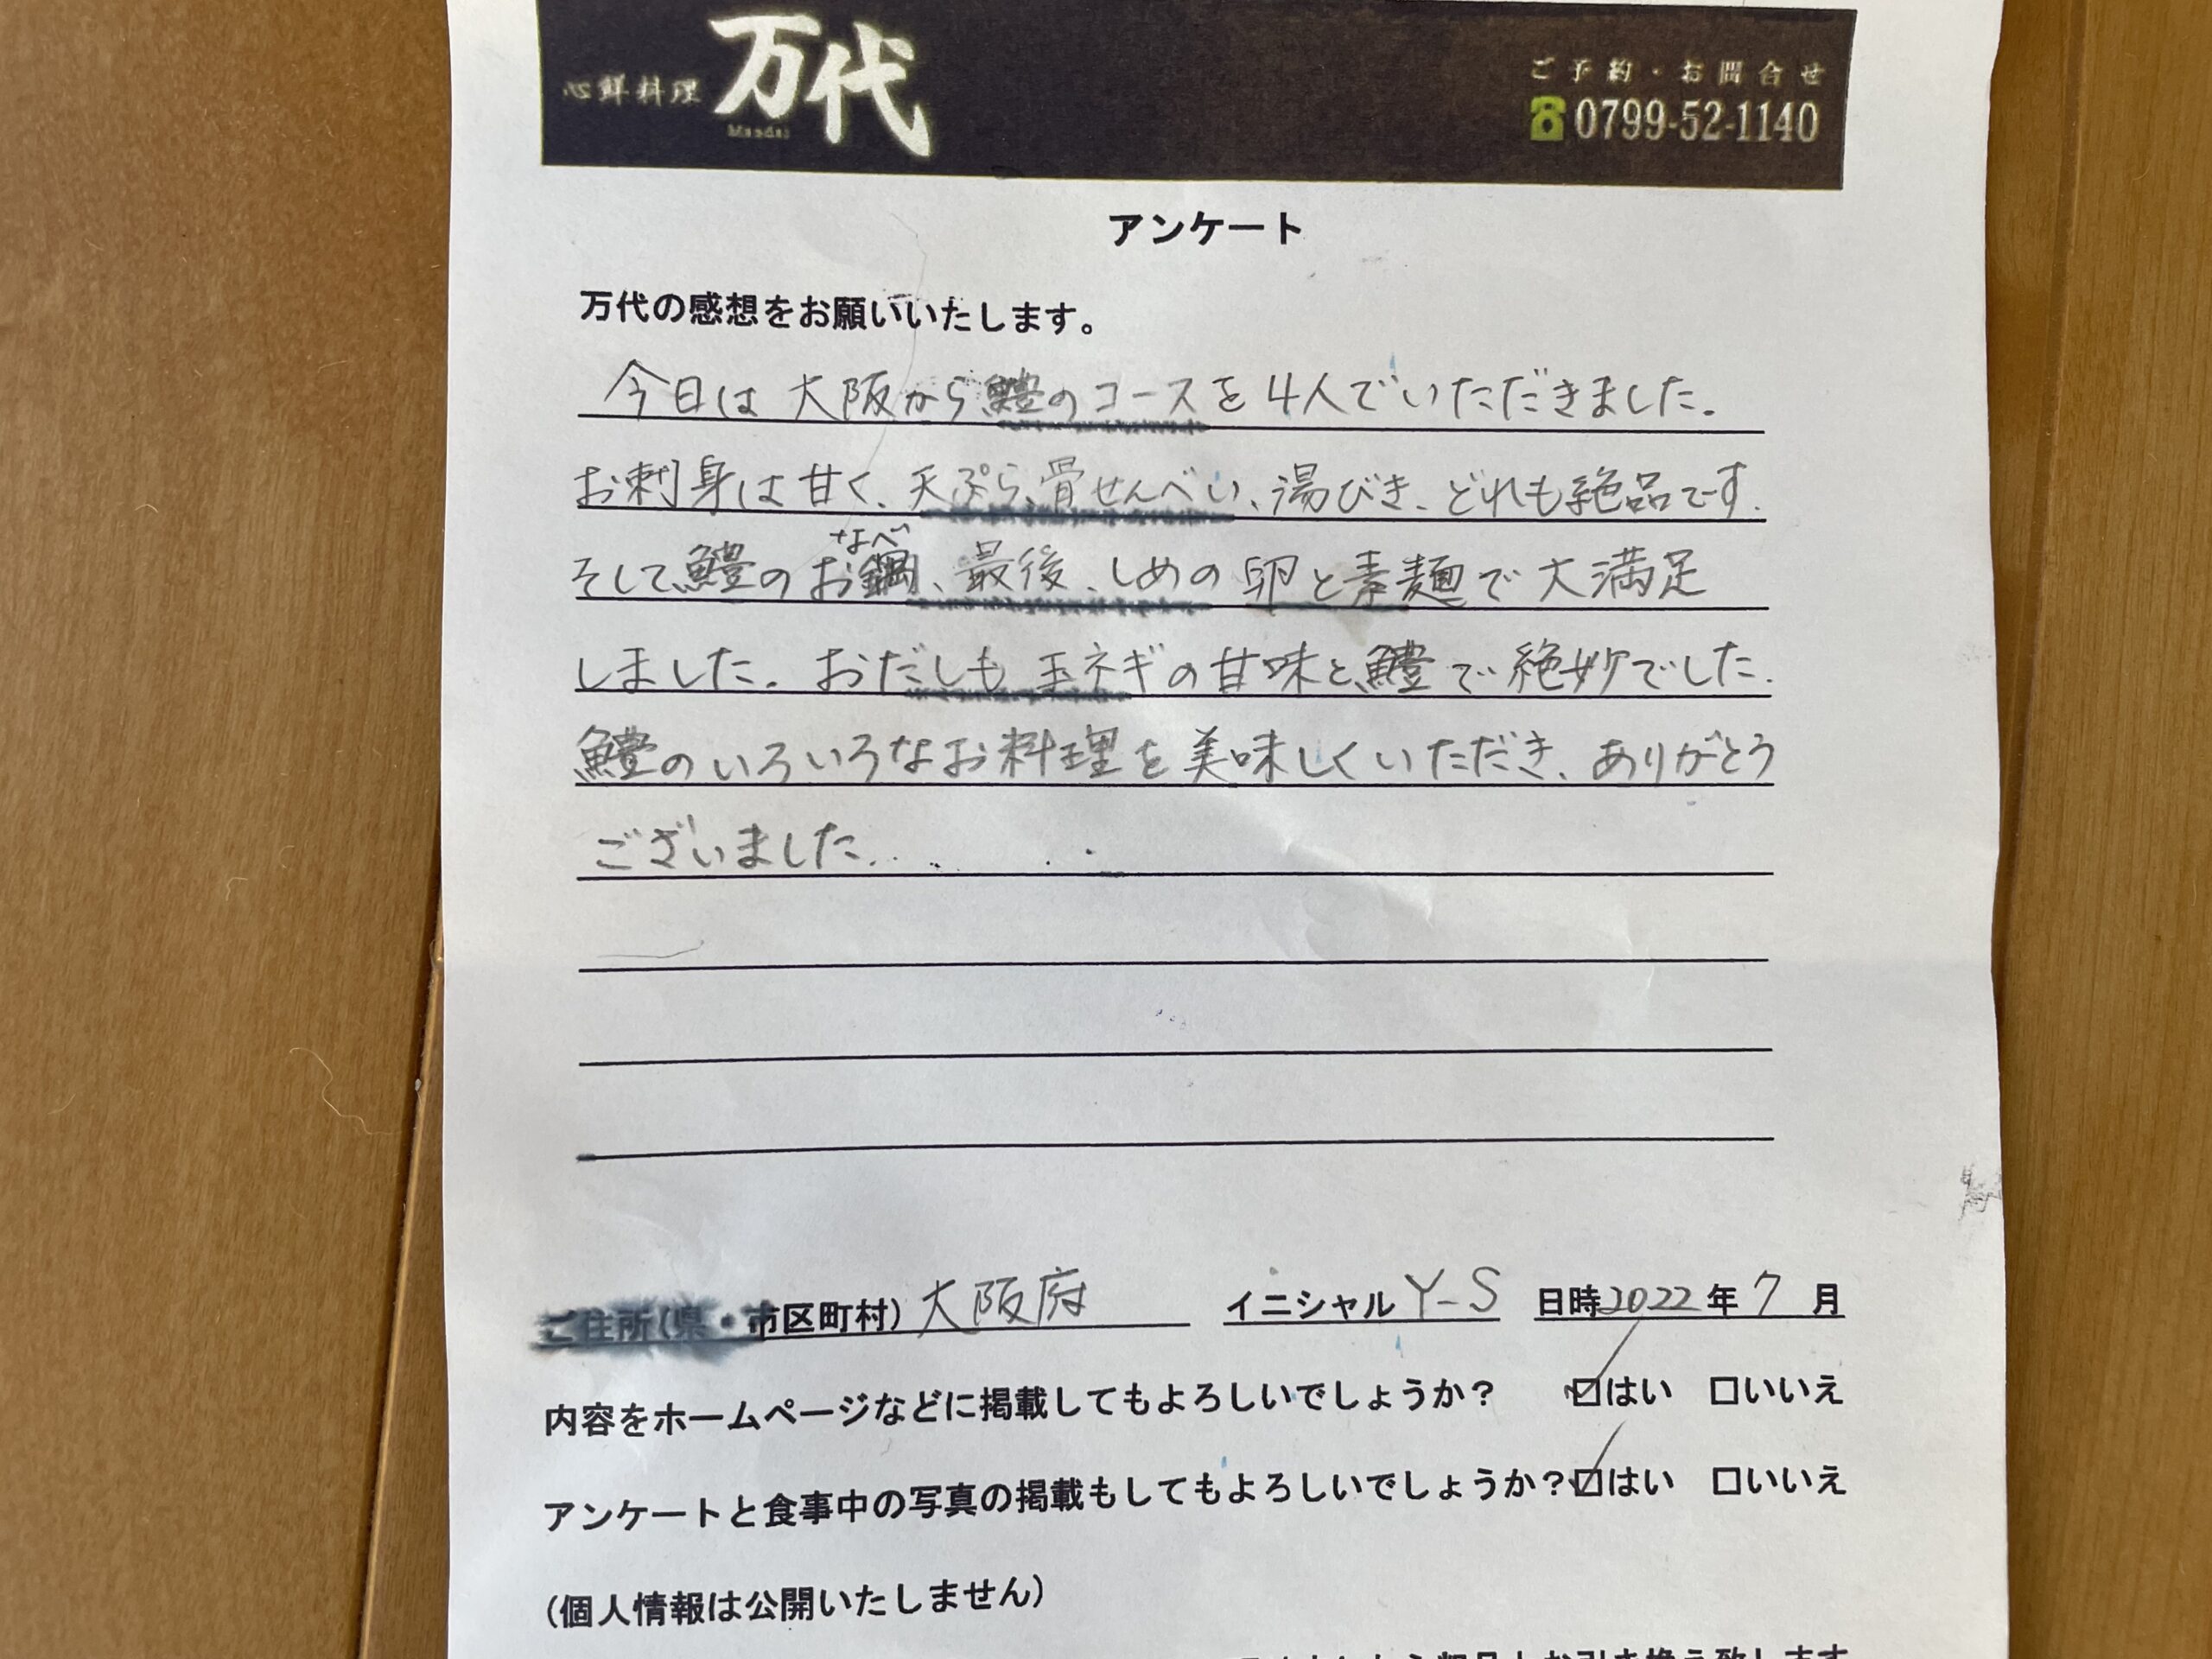 心鮮料理 万代
Mandai
ご予約・お問合せ
0799-52-1140
アンケート
万代の感想をお願いいたします。
今日は大阪から鱧のコースを4人でいただきました。
お刺身は甘く、天ぷら、骨せんべい、湯びき、どれも絶品です。
なべ
そして鱧のお鍋、最後、しめの卵と素麺で大満足
しました。おだしも玉ネギの甘味と鱧で絶妙でした。
鱧のいろいろなお料理を美味しくいただき、ありがとう
ございました。
ご住所(県・市区町村) 大阪府 イニシャル Y-S 日時2022年7月
内容をホームページなどに掲載してもよろしいでしょうか? ☑はい □いいえ
アンケートと食事中の写真の掲載もしてもよろしいでしょうか?☑はい □いいえ
(個人情報は公開いたしません)